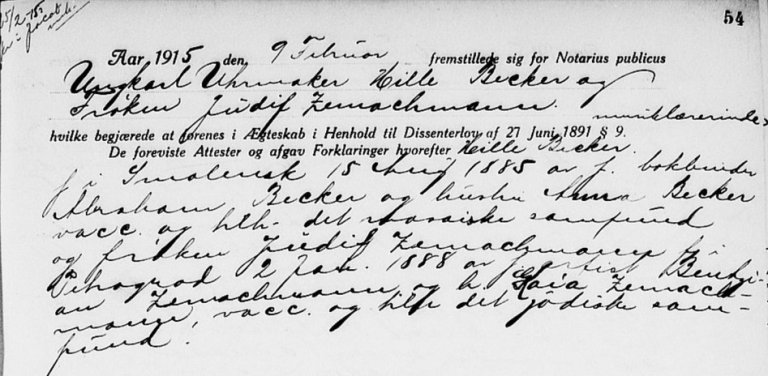 54
Aar 1915 den, 9 Februar fremstillede sig for Notarius publicus
Ungkarl Uhrmaker Hille Becker og
Frøken Judif Zemachmann. musiklærerinde
hvilke begjærede at førenes i Ægteskab i Henhold til Dissenterlov af 27 Juni 1891 § 9.
De foreviste Attester og afgav Forklaringer hvorefter Hille Becker.
f. i Smolensk 15 Aug 1885 av f. bokbinder
Abraham Becker og hustru Anna Becker
vacc. og tilh. det mosaiske samfund
og frøken Judif Zemachmann f. i
Petrograd 2 Jan. 1888 av artist Bentzi-
an Zemachmann og h. Haia Zemach-
mann, vacc. og tilh det jödiske sam-
fund.